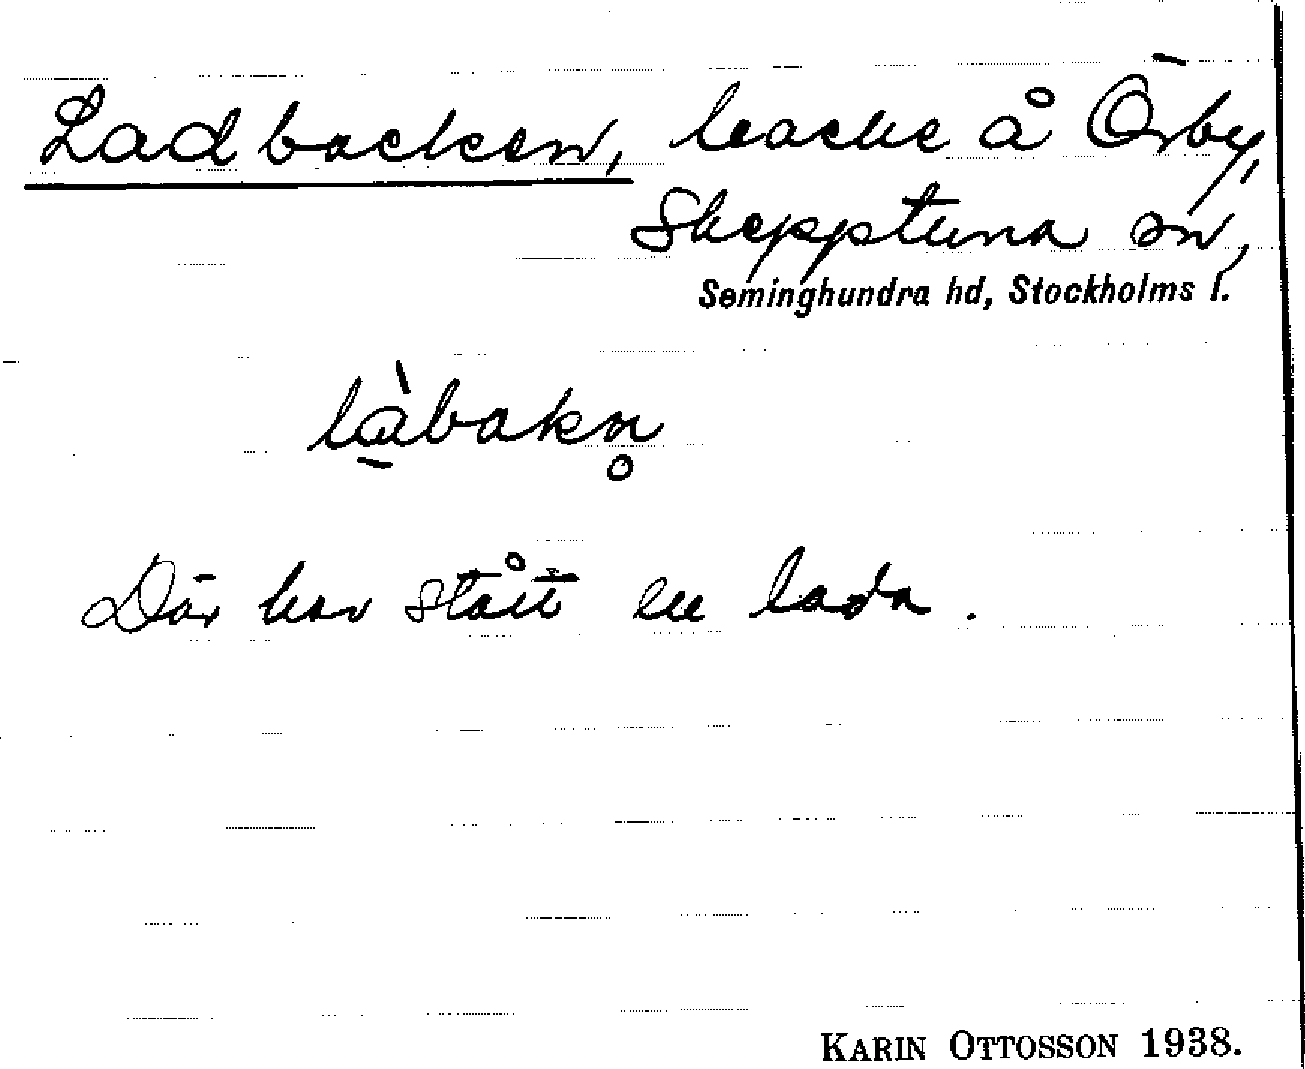 Ladbacken, backe å Örby,
Skepptuna sn,
Seminghundra hd, Stockholms l.
lὰ̱bakn̥
Där har stått en lada.
KARIN OTTOSSON 1938.